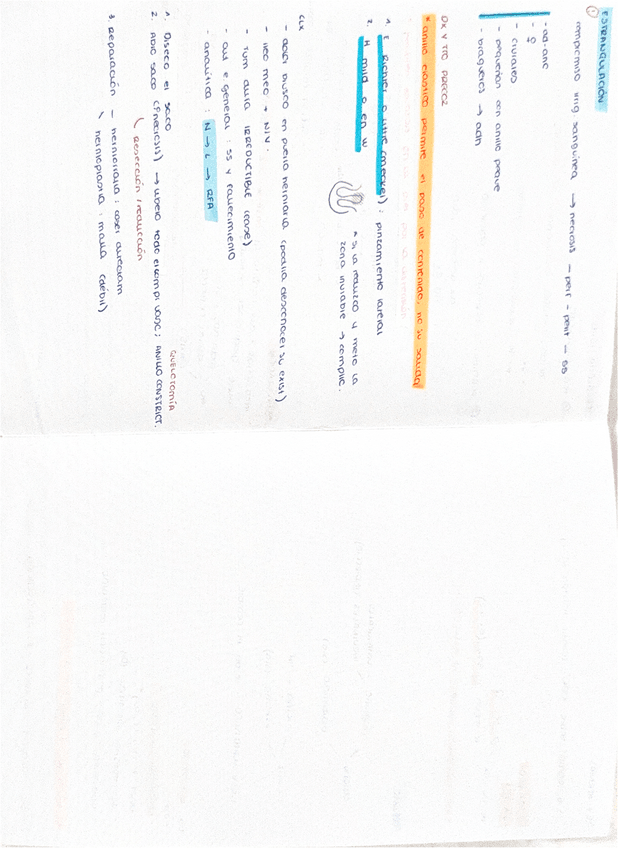 ① ESTRANGULACIÓN
compromiso irrig sanguínea → necrosis - perf - perit - SS
- ad-anc
- ♀
- crurales
- pequeñas con anillo peque
- bragueros → adh
DX Y TTO PRECOZ
* anillo elástico permite el paso de contenido, no su salida
1. E Richter o Littre (Meckel): pinzamiento lateral
2. H Maydl o en W
* si la reduzco y meto la
zona inviable → complic.
CLX
- dolor brusco en puerta herniaria (podría desconocer su exist)
- íleo mec → N/V.
- tum dura IRREDUCTIBLE (corse)
- alt e general: SS y fallecimiento
- analítica: N → L → RFA
1. Diseco el saco
2. Abro saco (¿necrosis) → libero todo el compr vasc: ANILLO CONSTRICT.
QUELOTOMÍA
(resección / reducción
3. Reparación - herniorrafia: coser
\ hernioplastia: malla (débil)